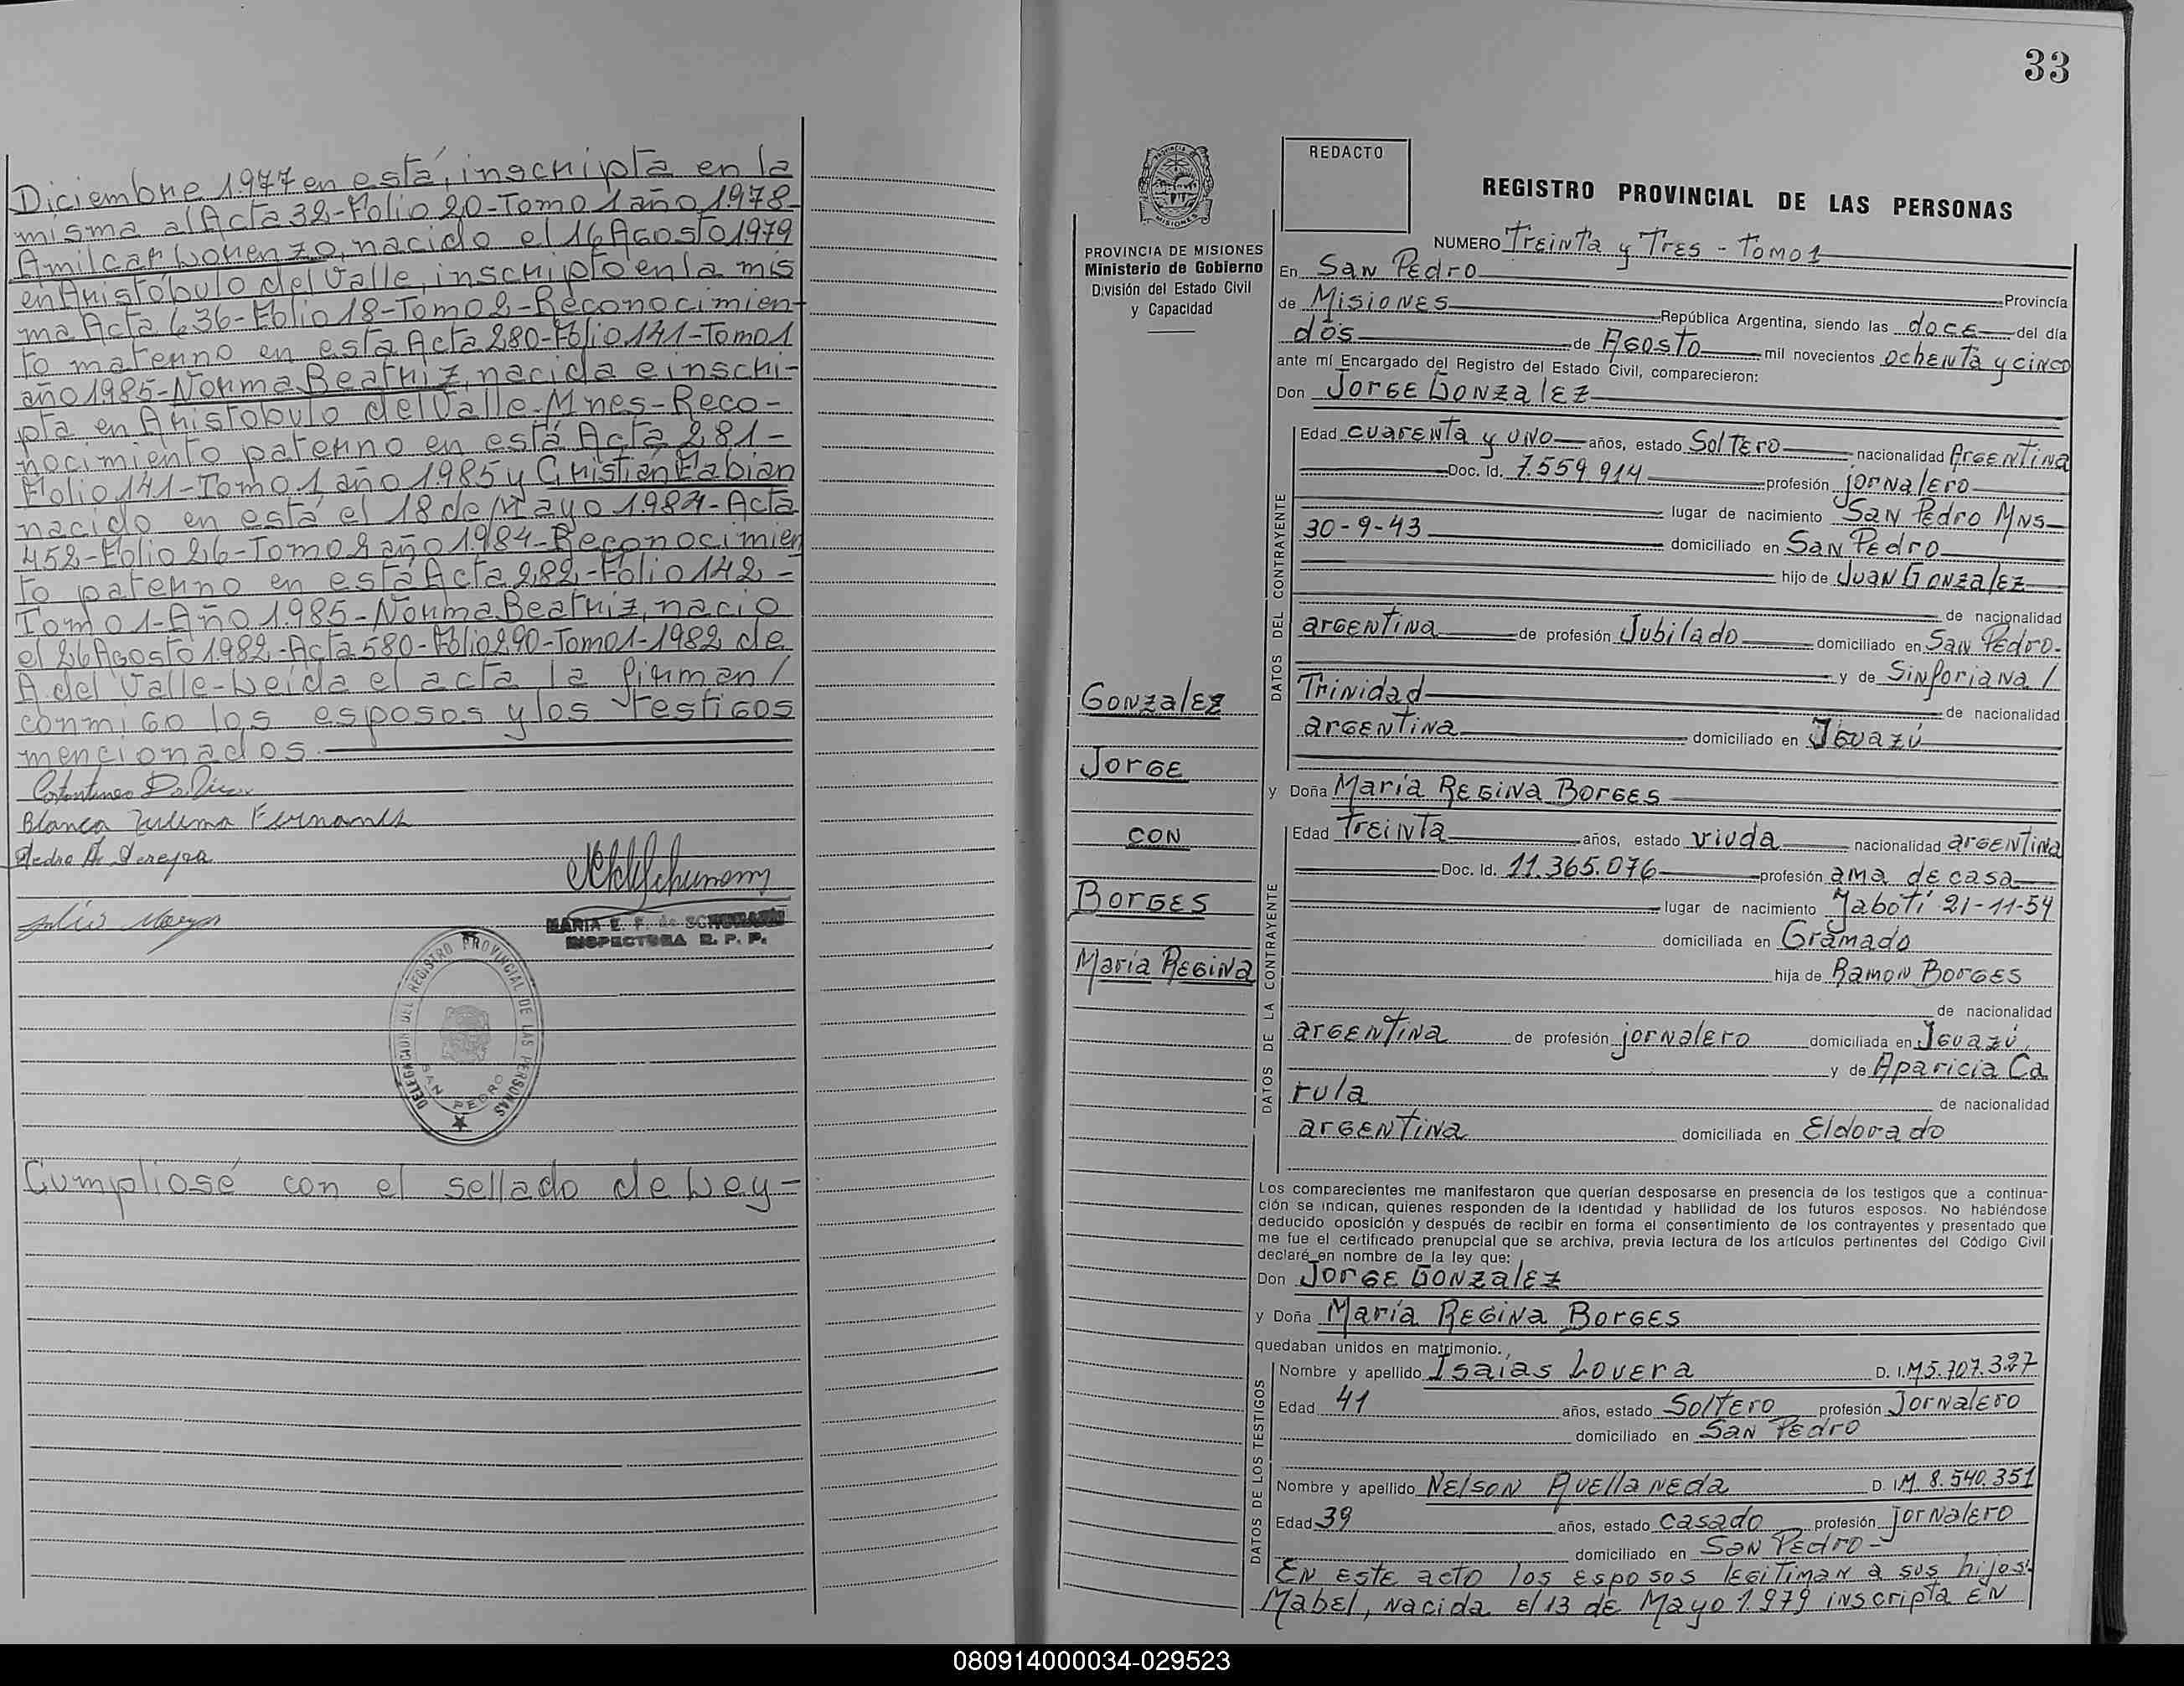 Diciembre 1977 en está, inscripta en la
misma al Acta 32-Folio 20-Tomo 1 año 1978-
Amilcar Lorenzo, nacido el 16 Agosto 1979
en Aristóbulo del Valle, inscripto en la mis
ma Acta 636-Folio 18-Tomo 2-Reconocimien-
to materno en está Acta 280-Folio 141-Tomo 1
año 1985-Norma Beatriz, nacida e inscri-
pta en Aristobulo del Valle-Mnes-Reco-
nocimiento paterno en está Acta 281-
Folio 141-Tomo 1 año 1985 y Cristian Fabian
nacido en está el 18 de Mayo 1984-Acta
452-Folio 26-Tomo 2 año 1984-Reconocimien
to paterno en está Acta 282-Folio 142-
Tomo 1-Año 1985-Norma Beatriz, nacio
el 26 Agosto 1982-Acta 580-Folio 290-Tomo 1-1982 de
A. del Valle-Leida el acta la firman/
conmigo los esposos y los testigos
mencionados.
Blanca Zulema Fernandez
Pedro A. Pereyra
MARIA E. F. de
INSPECTORA R. P. P.
DELEGACION DEL REGISTRO PROVINCIAL DE LAS PERSONAS
SAN PEDRO
Cumpliosé con el sellado de Ley-
33
PROVINCIA DE MISIONES
Ministerio de Gobierno
División del Estado Civil
y Capacidad
Gonzalez
Jorge
CON
Borges
María Regina
REDACTO
REGISTRO PROVINCIAL DE LAS PERSONAS
NUMERO Treinta y Tres - Tomo 1
En San Pedro Provincia
de Misiones República Argentina, siendo las doce del día
dos de Agosto mil novecientos ochenta y cinco
ante mí Encargado del Registro del Estado Civil, comparecieron:
Don Jorge Gonzalez
DATOS DEL CONTRAYENTE
Edad cuarenta y uno años, estado Soltero nacionalidad Argentina
Doc. Id. 7.559.914 profesión jornalero
lugar de nacimiento San Pedro Mns
30-9-43 domiciliado en San Pedro
hijo de Juan Gonzalez
de nacionalidad
argentina de profesión Jubilado domiciliado en San Pedro-
y de Sinforiana/
Trinidad de nacionalidad
argentina domiciliado en Iguazú
y Doña María Regina Borges
DATOS DE LA CONTRAYENTE
Edad Treinta años, estado viuda nacionalidad argentina
Doc. Id. 11.365.076 profesión ama de casa
lugar de nacimiento Yabotí 21-11-54
domiciliada en Gramado
hija de Ramon Borges
de nacionalidad
argentina de profesión jornalero domiciliada en Iguazú
y de Aparicia Ca
rula de nacionalidad
argentina domiciliada en Eldorado
Los comparecientes me manifestaron que querían desposarse en presencia de los testigos que a continua-
ción se indican, quienes responden de la identidad y habilidad de los futuros esposos. No habiéndose
deducido oposición y después de recibir en forma el consentimiento de los contrayentes y presentado que
me fue el certificado prenupcial que se archiva, previa lectura de los artículos pertinentes del Código Civil
declaré en nombre de la ley que:
Don Jorge Gonzalez
y Doña María Regina Borges
quedaban unidos en matrimonio.
DATOS DE LOS TESTIGOS
Nombre y apellido Isaías Lovera D. I. M 5.707.327
Edad 41 años, estado Soltero profesión Jornalero
domiciliado en San Pedro
Nombre y apellido Nelson Avellaneda D. I. M. 8.540.351
Edad 39 años, estado casado profesión jornalero
domiciliado en San Pedro-
En este acto los esposos legitiman a sus hijos:
Mabel, nacida el 13 de Mayo 1979 inscripta en
080914000034-029523